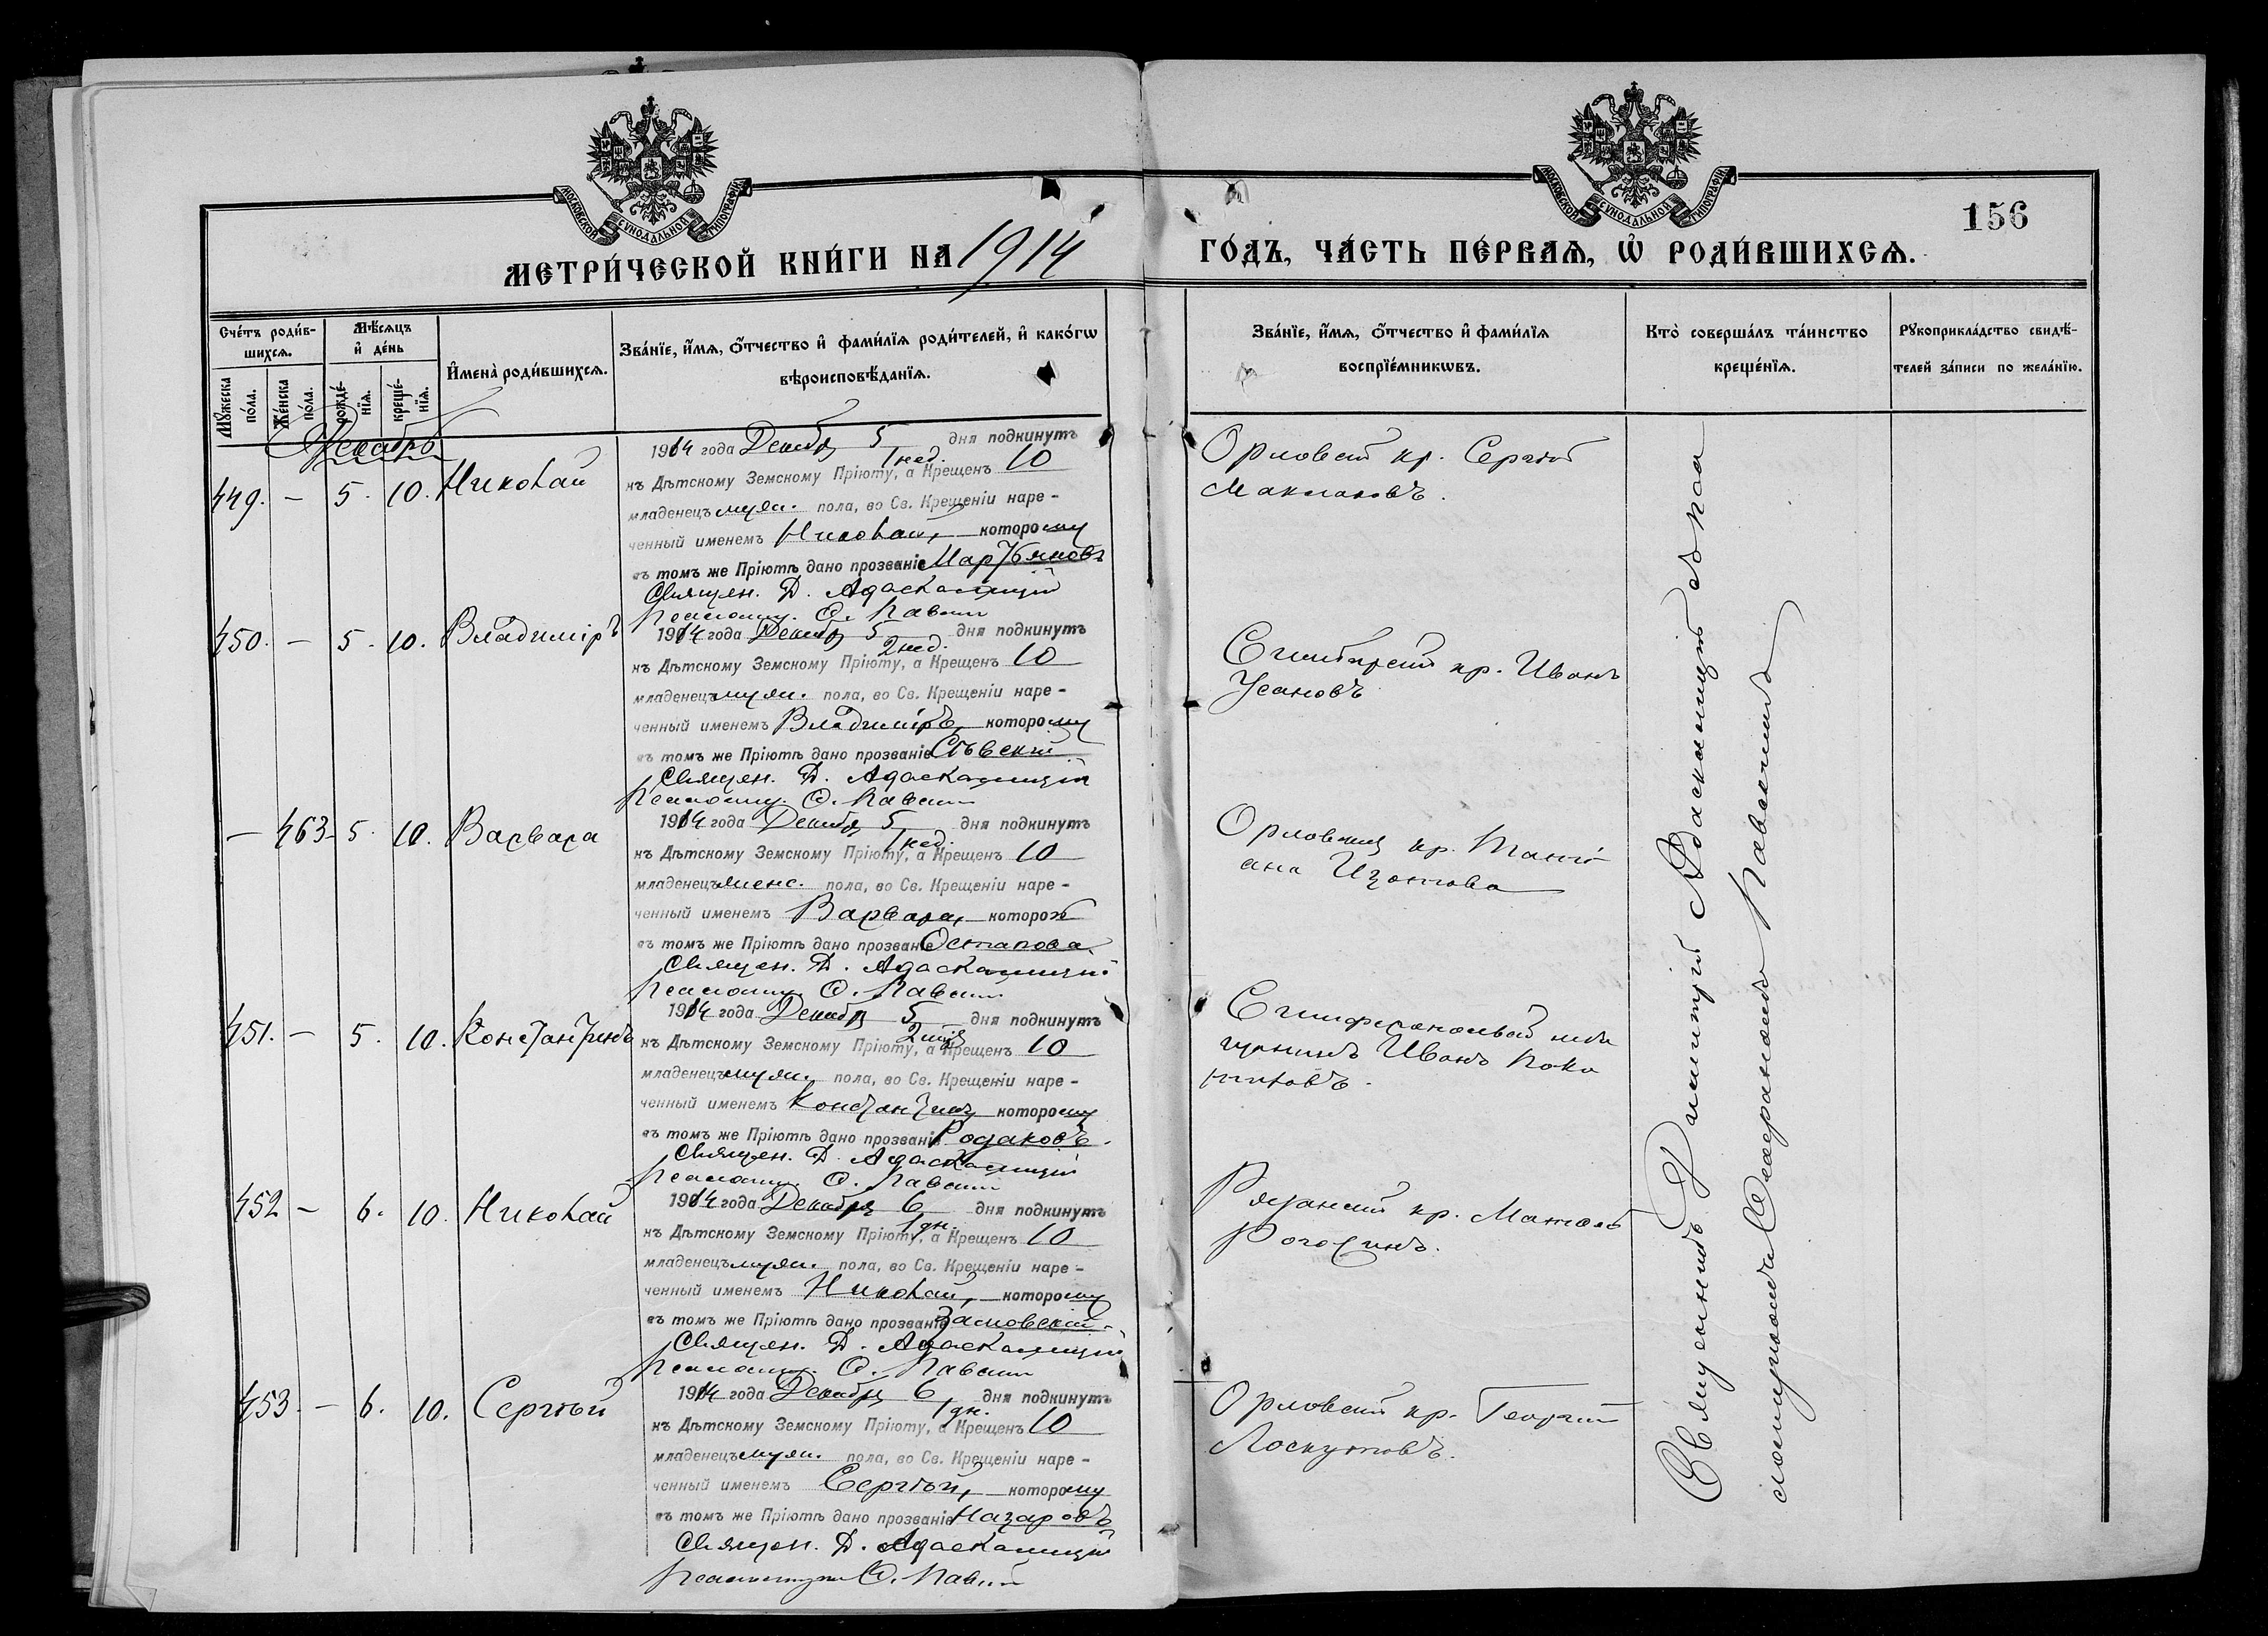 МОСКОВСКОЙ СУНОДАЛЬНОЙ ТИПОГРАФІИ
МОСКОВСКОЙ СУНОДАЛЬНОЙ ТИПОГРАФІИ
156
МЕТРИ́ЧЕСКОЙ КНИ́ГИ НА 1914 ГО́ДЪ, ЧА́СТЬ ПЕ́РВАѦ, Ѡ҆ РОДИ́ВШИХСѦ.
Сче́тъ роди́в-
шихсѧ.
Мꙋ́жеска по́ла.
Же́нска по́ла.
Мѣ́сѧцъ и҆ де́нь
рожде́-нїѧ.
креще́-нїѧ.
И҆мена̀ роди́вшихсѧ.
Зва́нїе, и҆́мѧ, ѻ҆́тчество и҆ фами́лїѧ роди́телей, и҆ како́гѡ
вѣроисповѣ́данїѧ.
Зва́нїе, и҆́мѧ, ѻ҆́тчество и҆ фами́лїѧ
воспрїе́мникѡвъ.
Кто̀ соверша́лъ та́инство
креще́нїѧ.
Рꙋкоприкла́дство свидѣ́-
телей за́писи по жела́нїю.
Декабрь
449. — 5. 10. Николай
1914 года Декабр 5 дня подкинутъ
1 нед.
къ Дѣтскому Земскому Пріюту, а Крещенъ 10
младенецъ муж. пола, во Св. Крещеніи наре-
ченный именемъ Николай, которому
въ томъ же Пріютѣ дано прозваніе
Священ. Д. Адаскалицкій
Псаломщ. О. Павлин
Орловскій кр. Сергѣй
450. — 5. 10. Владиміръ
1914 года Декабр 5 дня подкинутъ
2 нед.
къ Дѣтскому Земскому Пріюту, а Крещенъ 10
младенецъ муж. пола, во Св. Крещеніи наре-
ченный именемъ Владиміръ, которому
въ томъ же Пріютѣ дано прозваніе Сѣвскій
Священ. Д. Адаскалицкій
Псаломщ. О. Павлин
Симбирскій кр. Иванъ
Усановъ
— 463 5. 10. Варвара
1914 года Декабр 5 дня подкинутъ
1 нед.
къ Дѣтскому Земскому Пріюту, а Крещенъ 10
младенецъ женс. пола, во Св. Крещеніи наре-
ченный именемъ Варвара, которой
въ томъ же Пріютѣ дано прозваніе Остапова
Священ. Д. Адаскалицкій
Псаломщ. О. Павлин
Орловская кр. Татіа-
на Изотова
451. — 5. 10. Константинъ
1914 года Декабр 5 дня подкинутъ
къ Дѣтскому Земскому Пріюту, а Крещенъ 10
младенецъ муж. пола, во Св. Крещеніи наре-
ченный именемъ Константинъ которому
въ томъ же Пріютѣ дано прозваніе Родаковъ.
Священ. Д. Адаскалицкій
Псаломщ. О. Павлин
Симферопольскій мѣ
щанинъ Иванъ
452 — 6. 10. Николай
1914 года Декабря 6 дня подкинутъ
1 дн.
къ Дѣтскому Земскому Пріюту, а Крещенъ 10
младенецъ муж. пола, во Св. Крещеніи наре-
ченный именемъ Николай, которому
въ томъ же Пріютѣ дано прозваніе
Священ. Д. Адаскалицкій
Псаломщ. О. Павлин
Рязанскій кр. Матвѣй
453. — 6. 10. Сергѣй
1914 года Декабр 6 дня подкинутъ
1 дн.
къ Дѣтскому Земскому Пріюту, а Крещенъ 10
младенецъ муж. пола, во Св. Крещеніи наре-
ченный именемъ Сергѣй, которому
въ томъ же Пріютѣ дано прозваніе Назаровъ
Священ. Д. Адаскалицкій
Псаломщ. О. Павлин
Орловскій кр. Георгій
Лоскутовъ.
Священникъ Димитрій Адаскалицкій